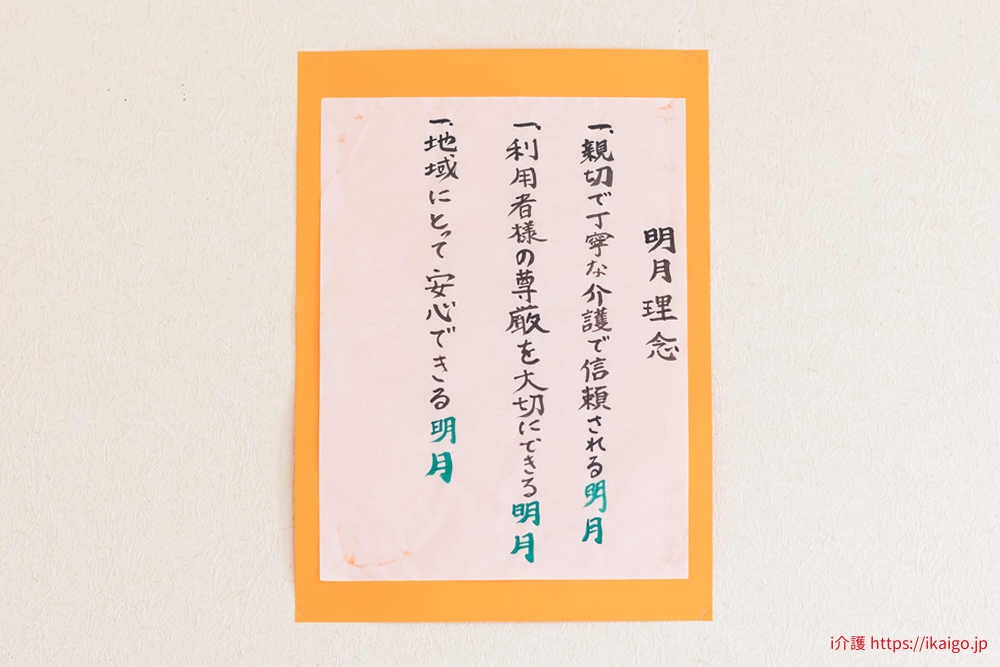 明月理念
一、親切で丁寧な介護で信頼される明月
一、利用者様の尊厳を大切にできる明月
一、地域にとって安心できる明月
i介護 https://ikaigo.jp